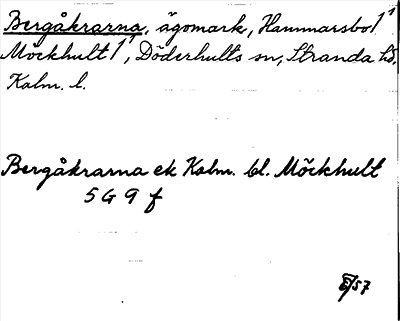 Bergåkrarna, ägomark, Hammarsbo 1¹
Möckhult 1¹, Döderhults sn, Stranda hd,
Kalm. l.
Bergåkrarna ek Kalm. bl. Möckhult
5 G 9 f
57